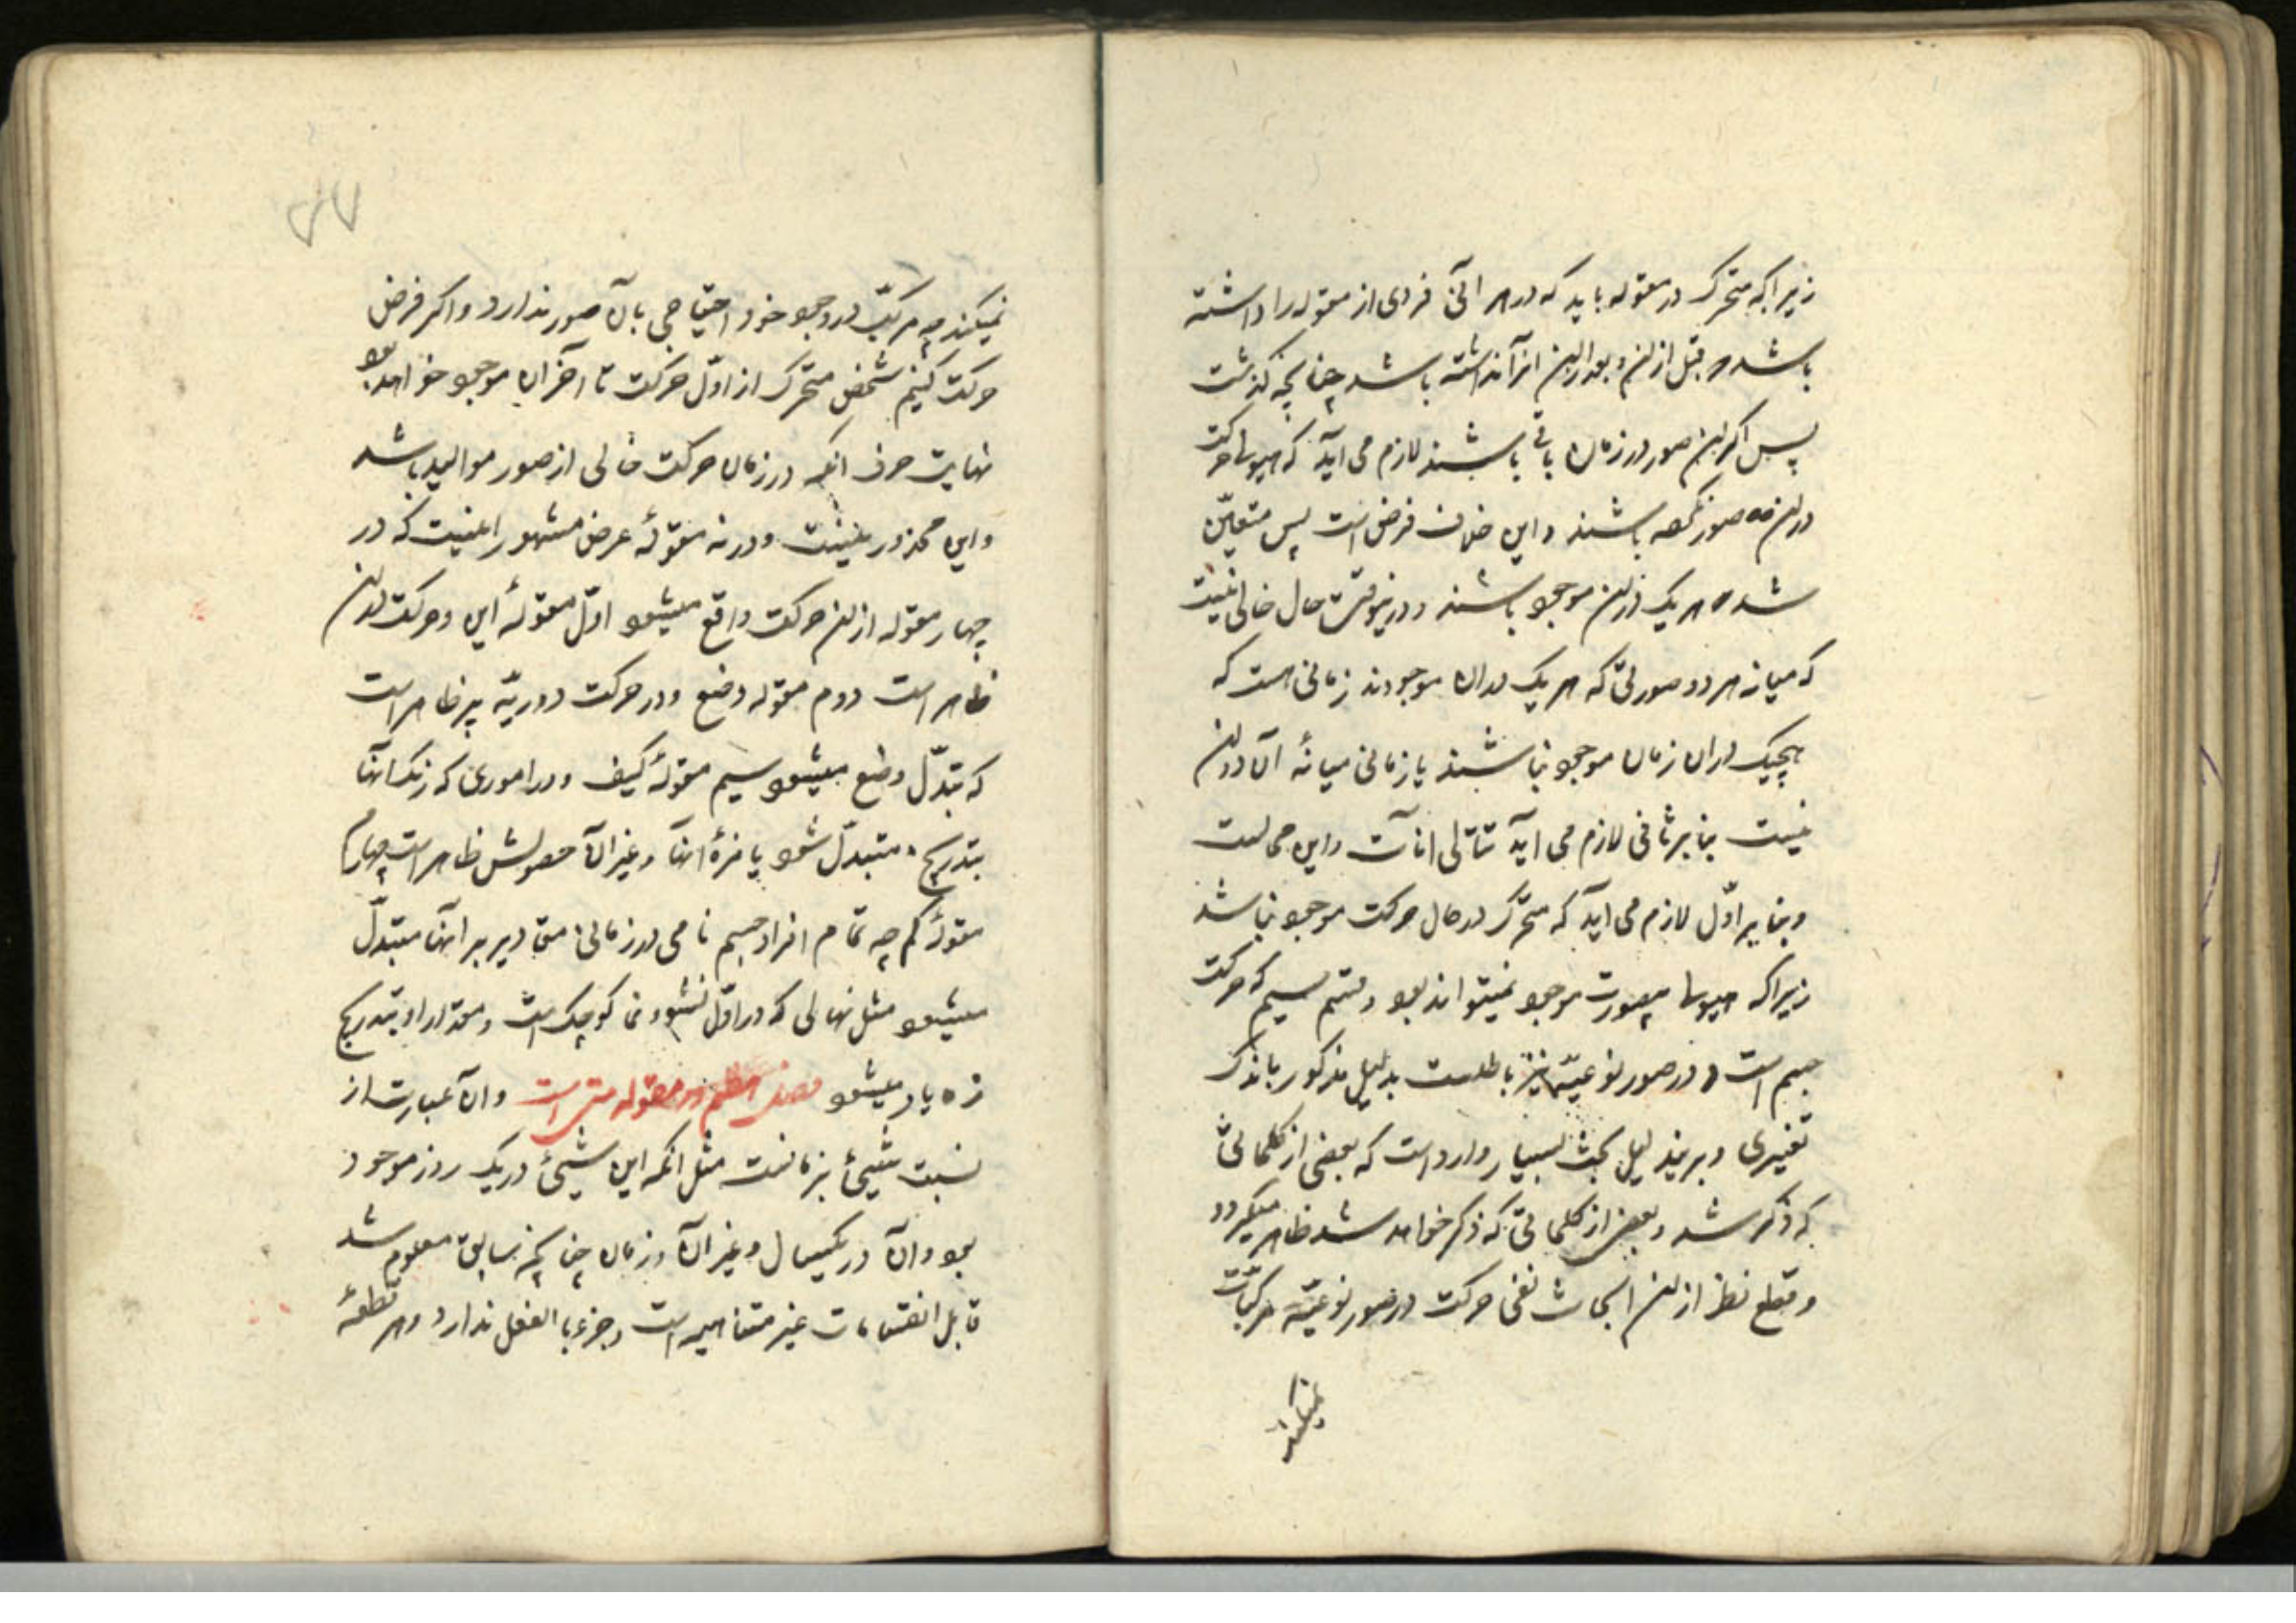 زیرا که متحرک در مقوله باید که در هر آنی فردی از مقوله را داشته
باشد و قبل از ان و بعد از ان انرا نداشته باشد چنانچه گذشت
پس اگر این صور در زمان باقی باشند لازم می آید که هیولا حرکت
در این صور نکرده باشند و این خلاف فرض است پس متعین
شد هر یک از این موجود باشند و درینوقت حال خالی نیست
که میانه هر دو صورتی که هر یک در ان موجودند زمانی است که
هیچیک در ان زمان موجود نباشند یا زمانی میانهٔ ان دو ان
نیست بنابر ثانی لازم می آید تتالی انات و این محالست
و بنابر اوّل لازم می آید که متحرّک در حال حرکت موجود نباشد
زیرا که هیولا بیصورت موجود نمیتواند بود و قسم سیم که حرکت
جسم است در صور نوعیّه نیز باطلست بدلیل مذکور باندک
تغییری و برین دلیل بحث بسیار وارد است که بعضی از کلماتی
که ذکر شد و بعضی از کلماتی که ذکر خواهد شد ظاهر میگردد
و قطع نظر از این ابحاث نفی حرکت در صور نوعیّه مرکبات
نمیکند
نمیکند چه مرکّب در وجود خود احتیاجی بان صور ندارد و اکر فرض
حرکت کنیم شخص متحرک از اوّل حرکت تا آخر ان موجود خواهد بود
نهایت حرف انکه در زمان حرکت خالی از صور موالید باشد
و این محذور نیست و در نه مقولهٔ عرض مشهور انیست که در
چهار مقوله از ان حرکت واقع میشود اوّل مقولهٔ این و حرکت در ان
ظاهر است دوم مقوله وضع و در حرکت دوریّه پر ظاهر است
که تبدّل وضع میشود سیم مقولهٔ کیف و در اموری که رنک انها
بتدریج متبدّل شود یا مزهٔ انها و غیر ان حصولش ظاهر است چهارم
مقولهٔ کم چه تمام افراد جسم نامی در زمانی مقادیر بر انها متبدّل
میشود مثل نهالی که در اوّل نشو و نما کوچک است و مقدار او بتدریج
زیاد میشود فصل در مقوله متی است و ان عبارت از
نسبت شیئ بزمانست مثل انکه این شیئ در یک روز موجود
بود و ان در یکسال و غیر ان و زمان چنانچه سابق معلوم شد
قابل انقسامات غیر متناهیه است و جزء بالفعل ندارد و هر قطعهٔ